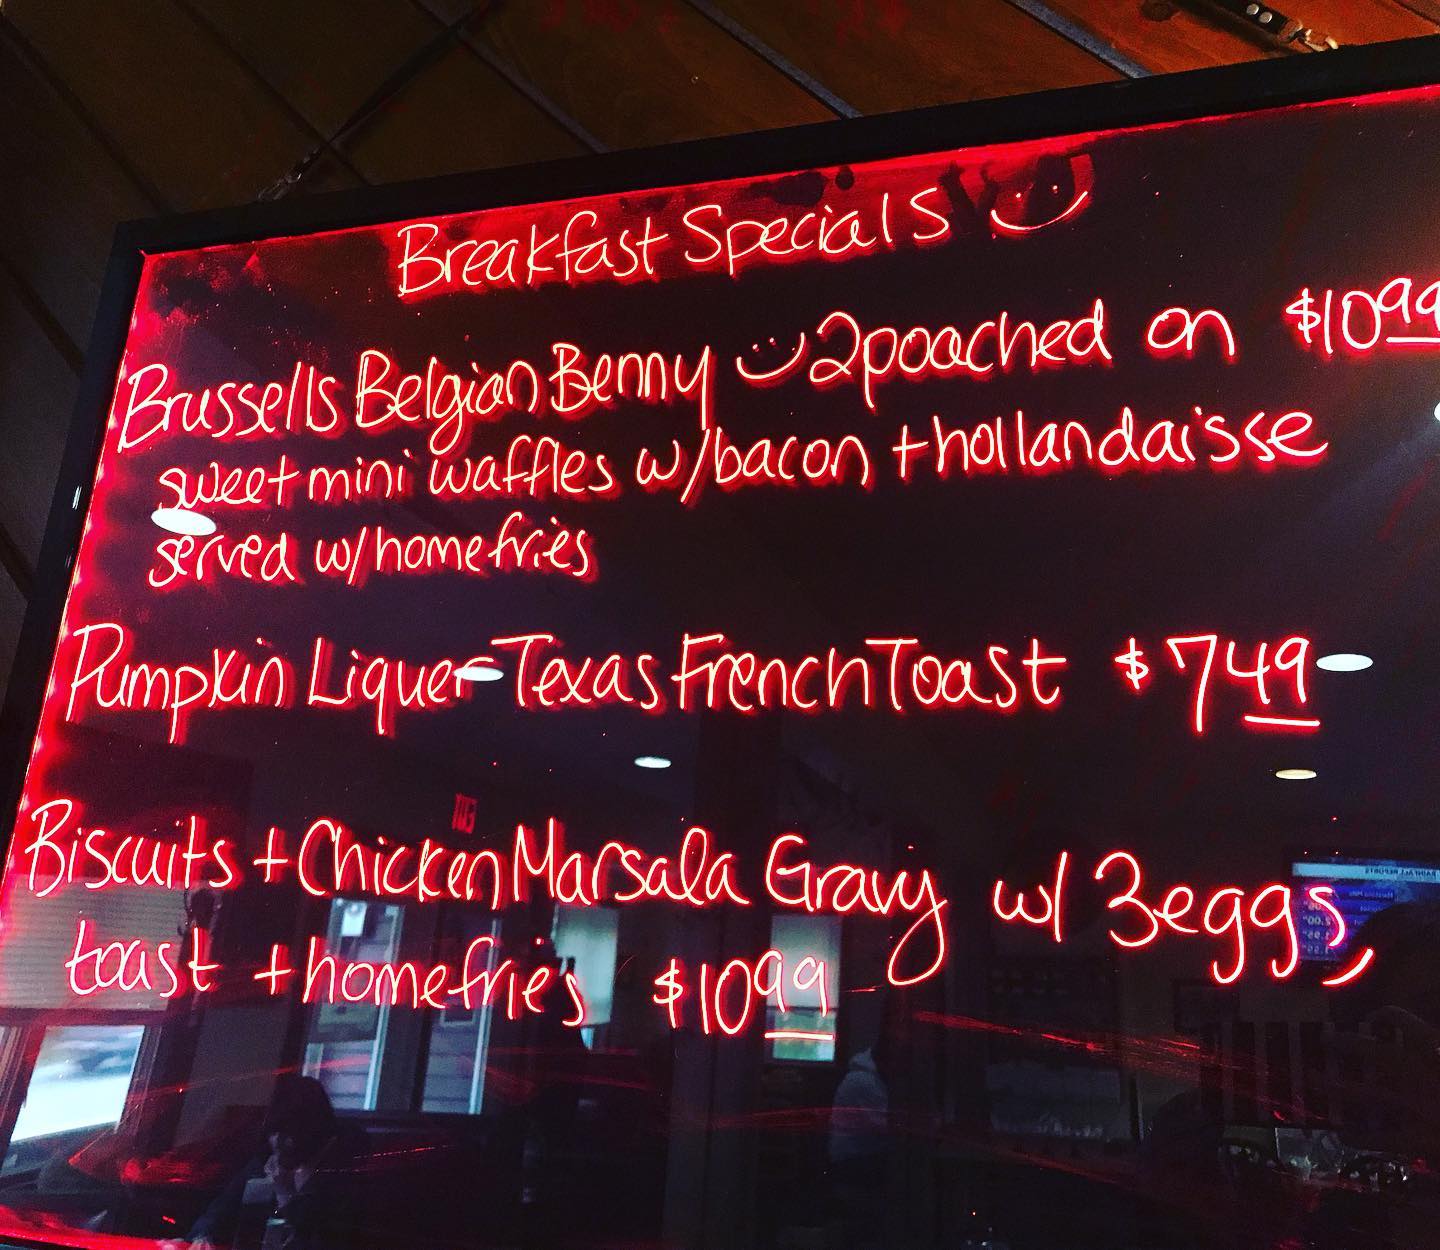 Breakfast Specials
Brussells Belgian Benny 2 poached on $10.99
sweet mini waffles w/bacon + hollandaisse
served w/homefries
Pumpkin Liquer Texas French Toast $7.49
Biscuits + Chicken Marsala Gravy w/ 3 eggs,
toast + homefries $10.99
RAINFALL REPORTS